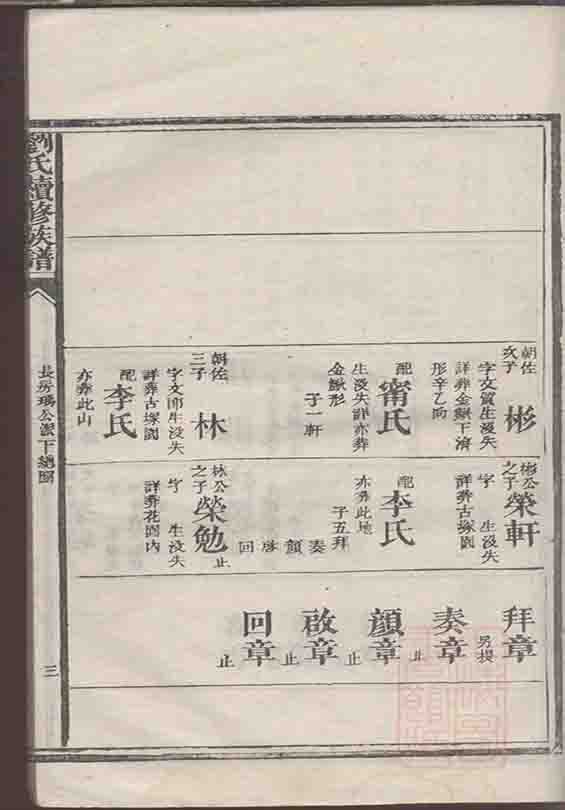 劉氏續修族譜
長房瑀公派下總圖
三
朝佐
次子
彬
字文質生没失
詳葬金鰍下濟
形辛乙向
配
甯氏
生没失詳亦葬
金鰍形
子一軒
朝佐
三子
林
字文郁生没失
詳葬古塚園
配
李氏
亦葬此山
彬公
之子
榮軒
字 生没失
詳葬古塚園
配
李氏
亦葬此地
子五拜
奏 顏 啟 回
林公
之子
榮勉
止
字 生没失
詳葬花園內
拜章
另提
奏章
止
顏章
止
啟章
止
回章
止